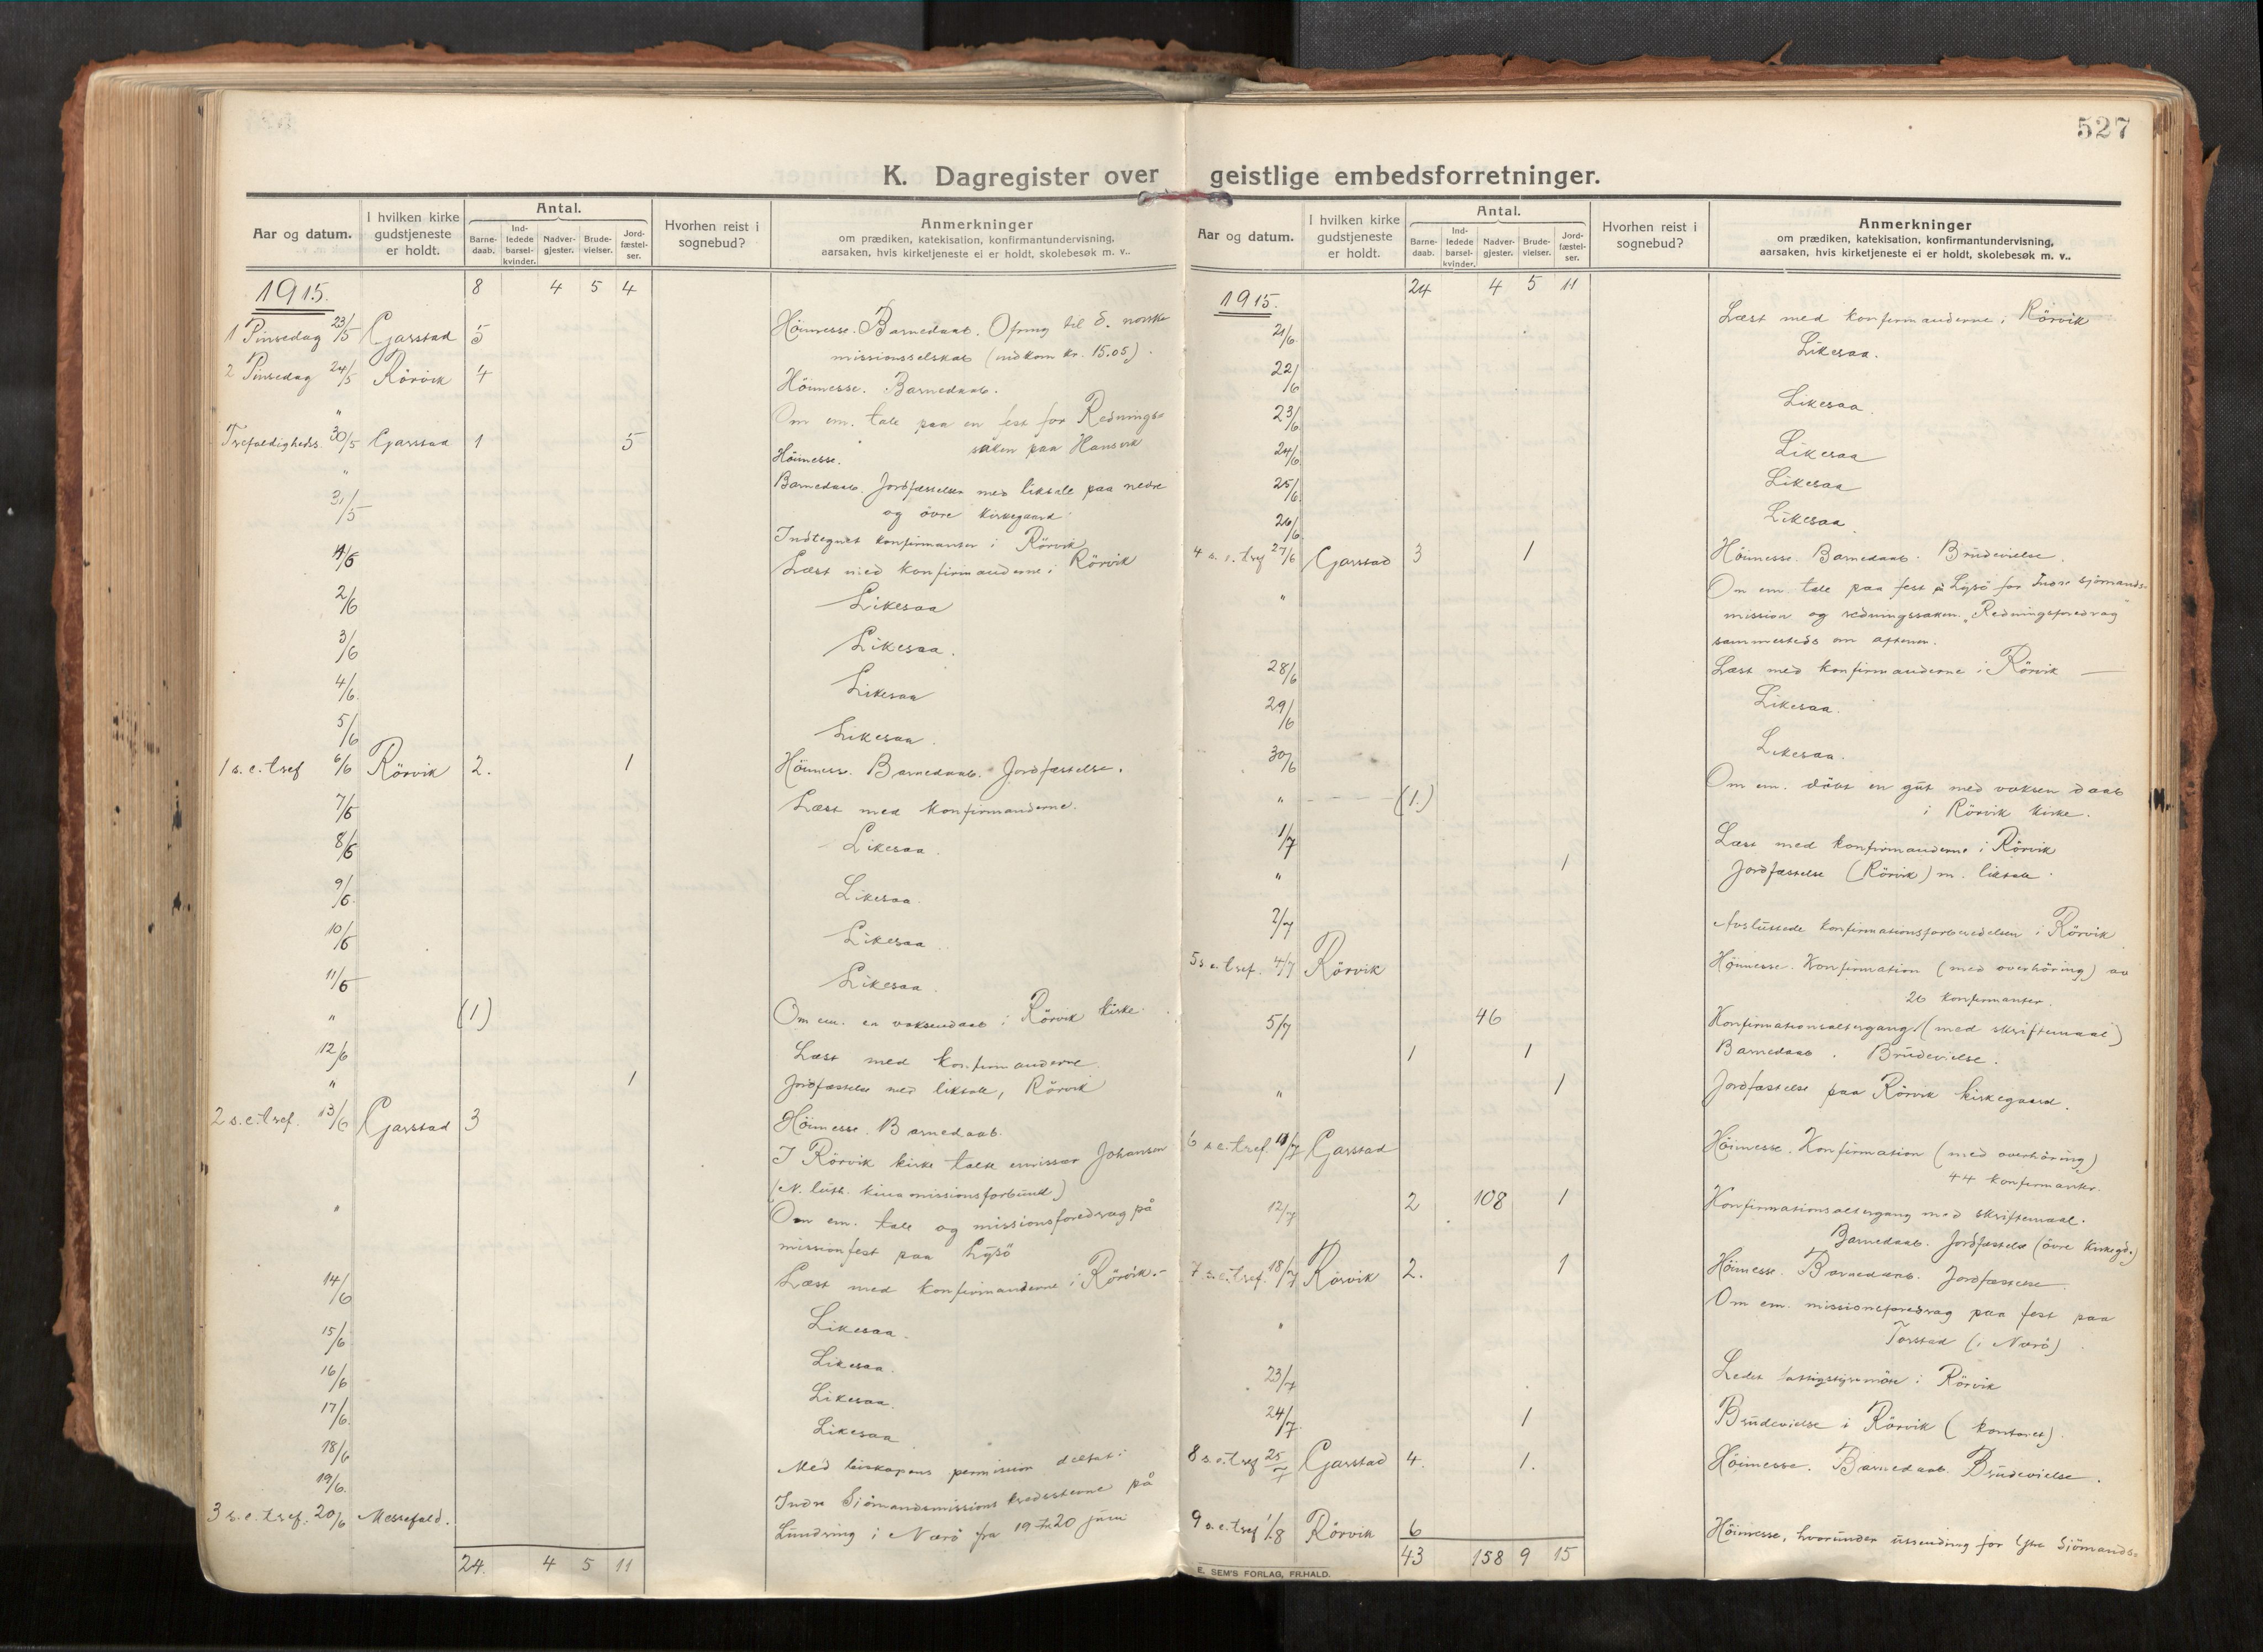 527
K. Dagregister over geistlige embedsforretninger.
Aar og datum.
I hvilken kirke gudstjeneste er holdt.
Antal.
Barne-daab.
Ind-ledede barsel-kvinder.
Nadver-gjester.
Brude-vielser.
Jord-fæstel-ser.
Hvorhen reist i sognebud?
Anmerkninger
om prædiken, katekisation, konfirmantundervisning,
aarsaken, hvis kirketjeneste ei er holdt, skolebesøk m. v..
1915. 8 4 5 4
1 Pinsedag 23/5 Garstad 5 Höimesse. Barnedaab. Ofring til d. norske
missionsselskab (indkom kr. 15.05).
2 Pinsedag 24/5 Rörvik 4 Höimesse. Barnedaab.
" Om em. tale paa en fest for Rednings=
saken paa Hansvik
Trefoldigheds. 30/5 Garstad 1 5 Höimesse.
" Barnedaab. Jordfæstelser med liktale paa nedre
og övre kirkegaard
31/5 Indtegnet konfirmanter i Rörvik
1/6 Læst med konfirmanderne i Rörvik
2/6 Likesaa
3/6 Likesaa.
4/6. Likesaa
5/6 Likesaa.
1 s. e. tref 6/6 Rörvik 2. 1 Höimesse. Barnedaab. Jordfæstelse.
7/6 Læst med konfirmanderne.
8/6 Likesaa.
9/6. Likesaa.
10/6 Likesaa.
11/6 Likesaa.
" (1) Om em. en voksendaab i Rörvik kirke.
12/6 Læst med konfirmanderne
" 1 Jordfæstelse med liktale, Rörvik
2 s. e. tref. 13/6 Garstad 3 Höimesse. Barnedaab.
I Rörvik kirke talte emissær Johansen
(N. luth. kinamissionsforbund)
" Om em. tale og missionsforedrag på
missionfest paa Lysö
14/6 Læst med konfirmanderne i Rörvik.-
15/6 Likesaa.
16/6 Likesaa.
17/6. Likesaa.
18/6 Likesaa
19/6. Med biskopens permission deltat i
Indre Sjömandsmissions kredsstevne på
3 s. e. tref. 20/6 Messefald. Lundring i Nærö fra 19 til 20 juni
24. 4 5 11
Aar og datum.
I hvilken kirke gudstjeneste er holdt.
Antal.
Barne-daab.
Ind-ledede barsel-kvinder.
Nadver-gjester.
Brude-vielser.
Jord-fæstel-ser.
Hvorhen reist i sognebud?
Anmerkninger
om prædiken, katekisation, konfirmantundervisning,
aarsaken, hvis kirketjeneste ei er holdt, skolebesøk m. v..
1915. 24 4 5 11
21/6. Læst med konfirmanderne i Rörvik
22/6 Likesaa.
23/6 Likesaa.
24/6. Likesaa
25/6. Likesaa
26/6 Likesaa.
4 s. e. tref 27/6 Garstad 3 1 Höimesse. Barnedaab. Brudevielse.
" Om em. tale paa fest på Lysö for Indre sjömands-
mission og redningssaken. "Redningsforedrag"
sammesteds om aftenen.
28/6 Læst med konfirmanderne i Rörvik
29/6 Likesaa.
30/6 Likesaa.
" (1.) Om em. döbt en gut med voksen daab
i Rörvik kirke.
1/7 Læst med konfirmanderne i Rörvik
" 1 Jordfæstelse (Rörvik) m. liktale.
2/7 Avsluttede konfirmationsforberedelsen i Rörvik
5 s. e. tref. 4/7 Rörvik Höimesse. Konfirmation (med overhöring) av
26 konfirmanter.
5/7 46 Konfirmationsaltergang (med skriftemaal)
1 1 Barnedaab. Brudevielse.
" 1 Jordfæstelse paa Rörvik kirkegaard.
6 s. e. tref. 11/7 Garstad Höimesse. Konfirmation (med overhöring)
44 konfirmanter.
12/7 2 108 1 Konfirmationsaltergang med skriftemaal.
Barnedaab. Jordfæstelse (övre kirkegd.)
7 s. e. tref. 18/7 Rörvik 2. 1 Höimesse. Barnedaab. Jordfæstelse.
" Om em. missionsforedrag paa fest paa
Torstad (i Nærö).
23/7 Ledet fattigstyremöte i Rörvik
24/7 1 Brudevielse i Rörvik (kontoret).
8 s. e. tref 25/7 Garstad 4. 1. Höimesse. Barnedaab. Brudevielse.
9 s. e. tref 1/8 Rörvik 6 Höimesse, hvorunder utsending for Ytre Sjömands=
43 158 9 15
E. SEM'S FORLAG, FR.HALD.